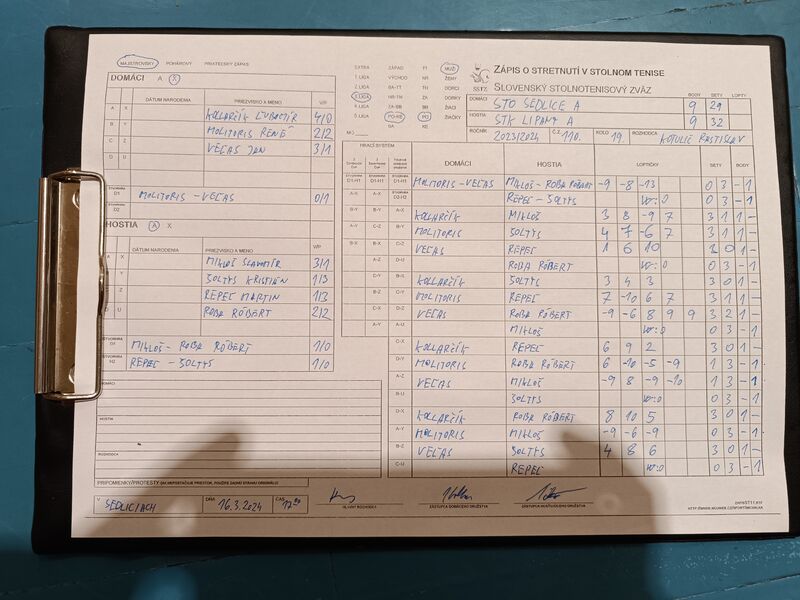 MAJSTROVSKÝ POHÁROVÝ PRIATEĽSKÝ ZÁPAS
DOMÁCI A X
DÁTUM NARODENIA PRIEZVISKO A MENO V/P
A X KOLLARČÍK ĽUBOMÍR 4/0
B Y MOLITORIS RENÉ 2/2
C Z VEĽAS JÁN 3/1
D U
ŠTVORHRA
D1 MOLITORIS - VEĽAS 0/1
ŠTVORHRA
D2
HOSTIA A X
DÁTUM NARODENIA PRIEZVISKO A MENO V/P
A X MIKLOŠ SLAVOMÍR 3/1
Y ŠOLTYS KRISTIÁN 1/3
REPEĽ MARTIN 1/3
D U ROBA RÓBERT 2/2
ŠTVORHRA
MIKLOŠ - ROBA RÓBERT 1/0
ŠTVORHRA
H2 REPEĽ - ŠOLTYS 1/0
DOMÁCI
HOSTIA
ROZHODCA
PRIPOMIENKY/PROTESTY
V SEDLICIACH DŇA 16.3.2024 ČAS
HLAVNÝ ROZHODCA ZÁSTUPCA DOMÁCEHO DRUŽSTVA ZÁSTUPCA HOSŤUJÚCEHO DRUŽSTVA
EXTRA ZÁPAD PI MUŽI
1. LIGA VÝCHOD NR ŽENY
2. LIGA BA-TT TN DORCI
3. LIGA NR-TN ZA DORKY
4. LIGA ZA-BB BB ŽIACI
5. LIGA PO-KE PO ŽIAČKY
MO KE
BA
SSTZ
ZÁPIS O STRETNUTÍ V STOLNOM TENISE
SLOVENSKÝ STOLNOTENISOVÝ ZVÄZ
BODY SETY LOPTY
DOMÁCI STO SEDLICE A 9 29
HOSTIA STK LIPANY A 9 32
ROČNÍK 2023/2024 Č.Z. 110. KOLO 19. ROZHODCA KOTULIČ RASTISLAV
HRACÍ SYSTÉM
DOMÁCI HOSTIA LOPTIČKY SETY BODY
MOLITORIS - VEĽAS MIKLOŠ - ROBA RÓBERT -9 -8 -13 0 3 - 1
REPEĽ - ŠOLTYS w:0 0 3 - 1
KOLLARČÍK MIKLOŠ 3 8 -9 7 3 1 1 -
MOLITORIS ŠOLTYS 4 7 -6 7 3 1 1 -
VEĽAS REPEĽ 1 6 10 3 0 1 -
ROBA RÓBERT w:0 0 3 - 1
KOLLARČÍK ŠOLTYS 3 4 3 3 0 1 -
MOLITORIS REPEĽ 7 -10 6 7 3 1 1 -
VEĽAS ROBA RÓBERT -9 -6 8 9 9 3 2 1 -
MIKLOŠ w:0 0 3 - 1
KOLLARČÍK REPEĽ 6 9 2 3 0 1 -
MOLITORIS ROBA RÓBERT 6 -10 -5 -9 1 3 - 1
VEĽAS MIKLOŠ -9 8 -9 -10 1 3 - 1
ŠOLTYS w:0 0 3 - 1
KOLLARČÍK ROBA RÓBERT 8 10 5 3 0 1 -
MOLITORIS MIKLOŠ -9 -6 -9 0 3 - 1
VEĽAS ŠOLTYS 4 8 6 3 0 1 -
REPEĽ w:0 0 3 - 1